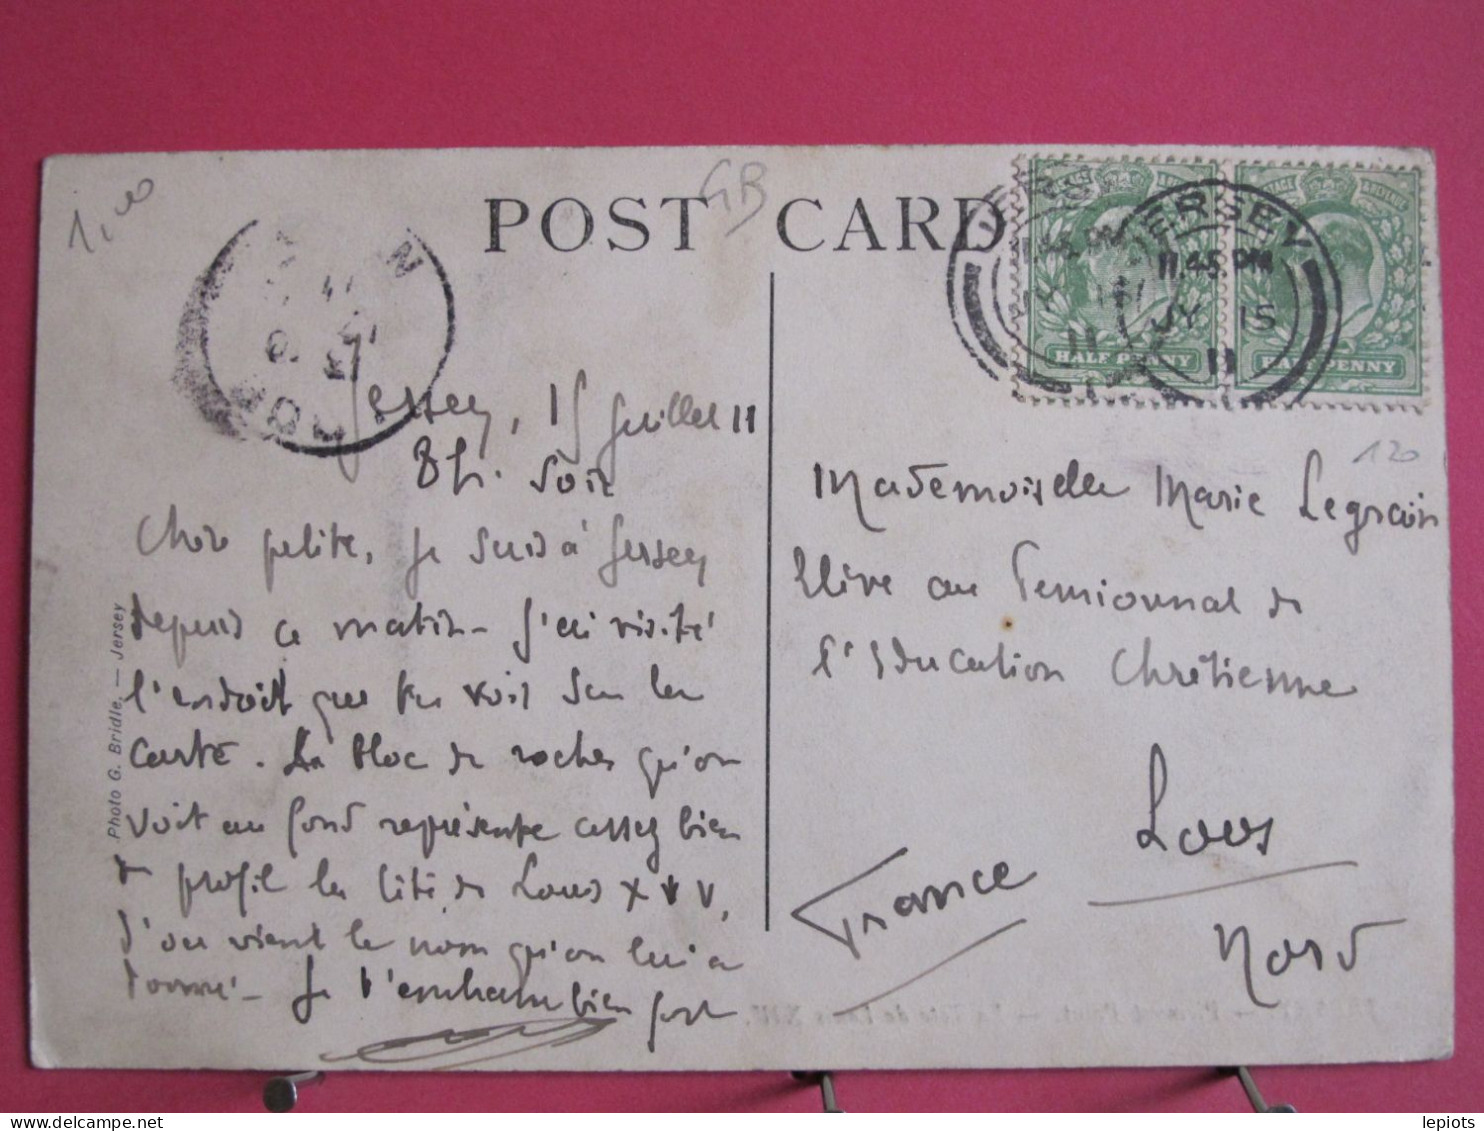 1,00
GB
POST CARD
JERSEY
11.45 PM
JY 15
11
HALF PENNY
HALF PENNY
120
Jersey, 15 Juillet 11
8h. Soir
Chère petite, je suis à Jersey
depuis ce matin - J'ai visité
l'endroit que tu vois sur la
carte. Le bloc de roches qu'on
voit au fond représente assez bien
de profil la tête de Louis XIV,
d'où vient le nom qu'on lui a
donné - Je t'embrasse bien fort
Mademoiselle Marie Legrain
Elève au Pensionnat de
l'Education Chrétienne
Loos
Nord
France
Photo G. Bridle. — Jersey